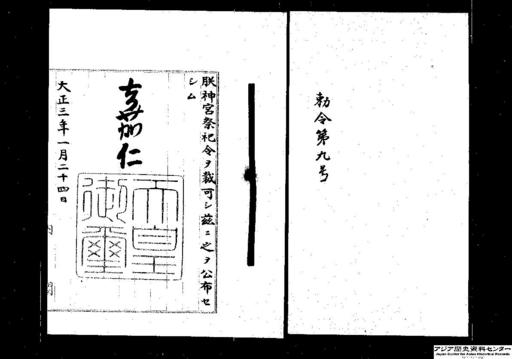 勅令第九号
朕神宮祭祀令ヲ裁可シ茲ニ之ヲ公布セ
シム
嘉仁
天皇
御璽
大正三年一月二十四日
内 閣
アジア歴史資料センター
Japan Center for Asian Historical Records